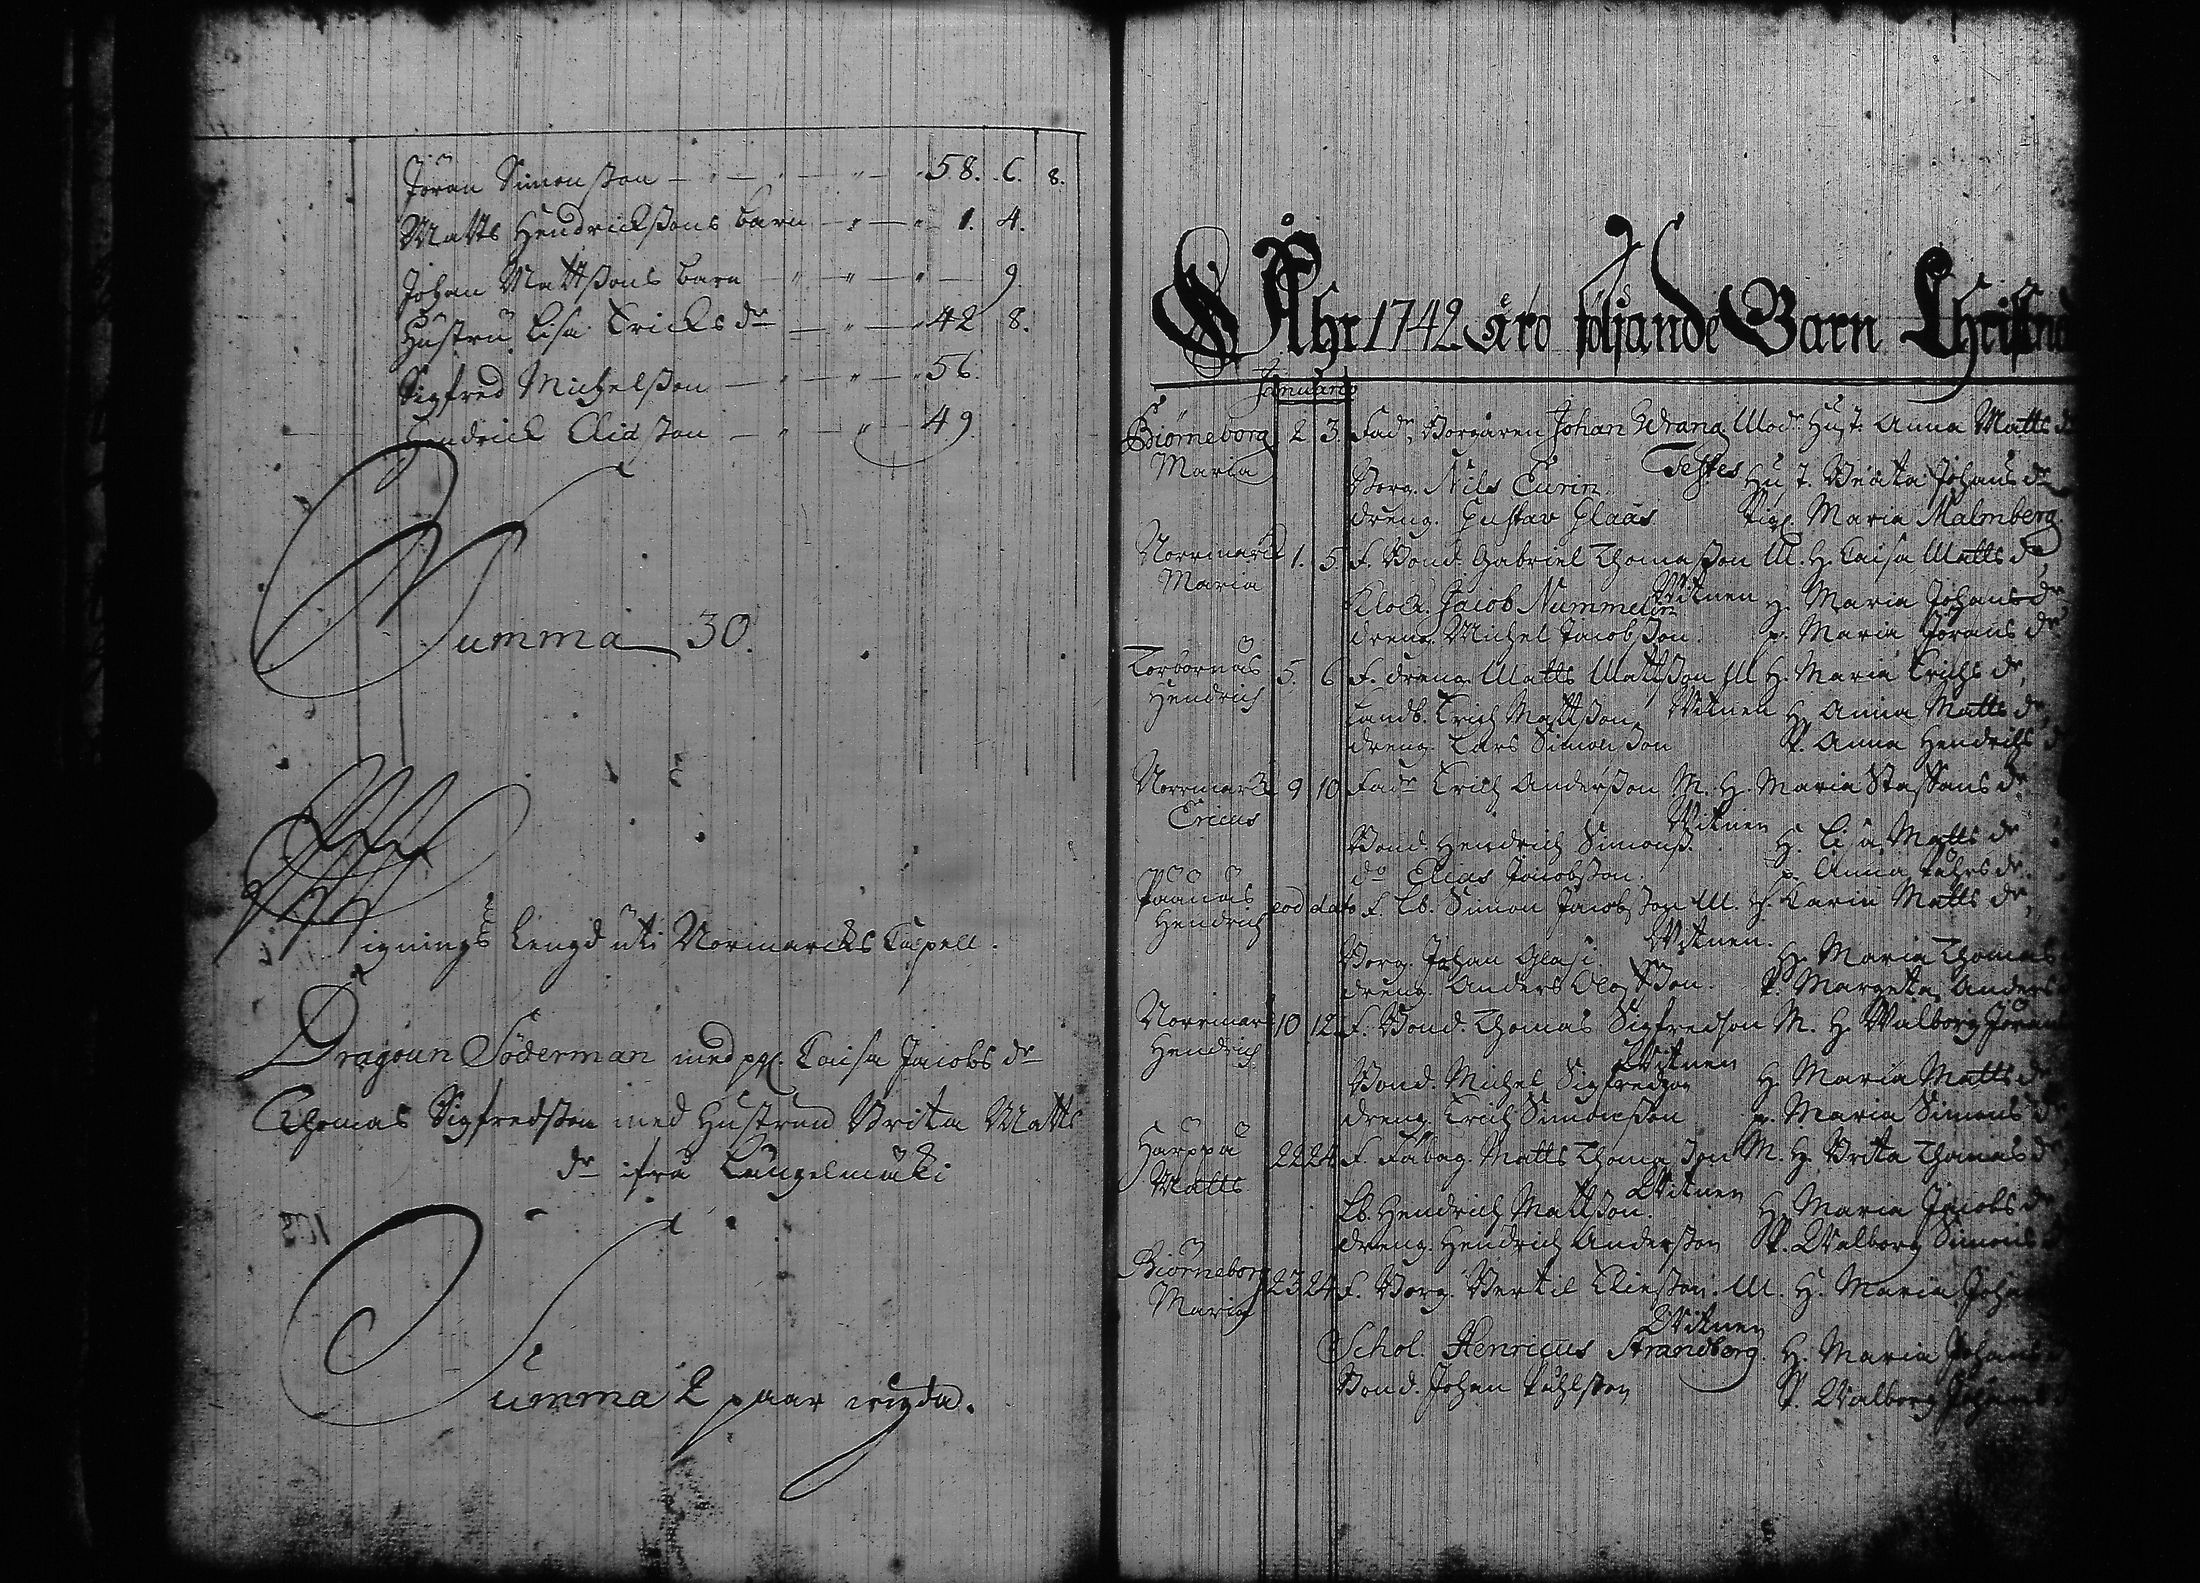 Jöran Simonsson — 58. 6. 8.
Matts Hendrickssons barn — 1. 4.
Johan Mattssons barn — 9
Hustru Lisa Ericks dr — 42 8.
Sigfred Michelsson — 56.
Hendrick Eliasson — 49.
Summa 30.
Vignings Lengd uti Normarcks Capell.
Dragoun Söderman med pig. Caisa Jacobs dr
Thomas Sigfredsson med Hustrun Brita Matts
dr ifrå Lengelmäki
Summa 2 paar wigda.
Åhr 1742 äro följande Barn Christnade
Januario
Biörneborg 2 3. Fadr. Borgaren Johan Wrang Modr. Hust. Anna Matts dr
Maria Testes
Borg. Nils Curin. Hust. Beata Johans dr
dreng. Gustav Glaas Pig. Maria Malmberg.
Norrmark 1. 5 F. Bond. Gabriel Thomasson M. H. Caisa Matts dr
Maria Witnen
Klock. Jacob Nummelin H. Maria Johans dr
dreng. Michel Jacobsson. p. Maria Jörans dr
Torbornäs 5. 6 F. dreng. Matts Mattsson M H. Maria Erichs dr,
Hendrich Witnen
Landb. Erich Mattsson H. Anna Matts dr,
dreng. Lars Simonsson P. Anna Hendrichs d
Norrmark 9 10 Fadr Erich Andersson M. H. Maria Staffans dr
Ericus Witnen
Bond. Hendrich Simonss. H. Lisa Matts dr
do Elias Jacobsson. p. Anna Påhls dr.
Påånäs eod dato F. Lb. Simon Jacobsson M. H. Carin Matts dr,
Hendrich Witnen.
Borg. Johan Glasi H. Maria Thomas
dreng. Anders Olofsson. P. Margeta Anders
Norrmark 10 12 F. Bond. Thomas Sigfredson M. H. Walborg Jöran
Hendrich Witnen
Bond. Michel Sigfredson H. Maria Matts dr
dreng Erich Simonsson p. Maria Simons dr
Harppå 22 24 F. Matts Thomasson M. H. Brita Thomas dr
Matts Witnen
Lb. Hendrich Mattson. H. Maria Jacobs dr
dreng. Hendrich Andersson P. Walborg Simons d
Biörneborg 23 24 F. Borg. Bertil Clieson. M. H. Maria Johan
Maria Witnen
Schol. Henricus Strandberg. H. Maria Johans
Bond. Johan Påhlsson P. Walborg Johans